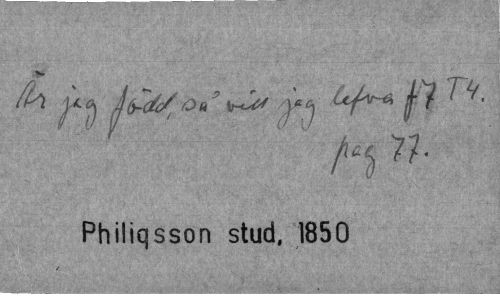 Är jag född, så vill jag lefva f7 T4.
pag 77.
Philiqsson stud, 1850